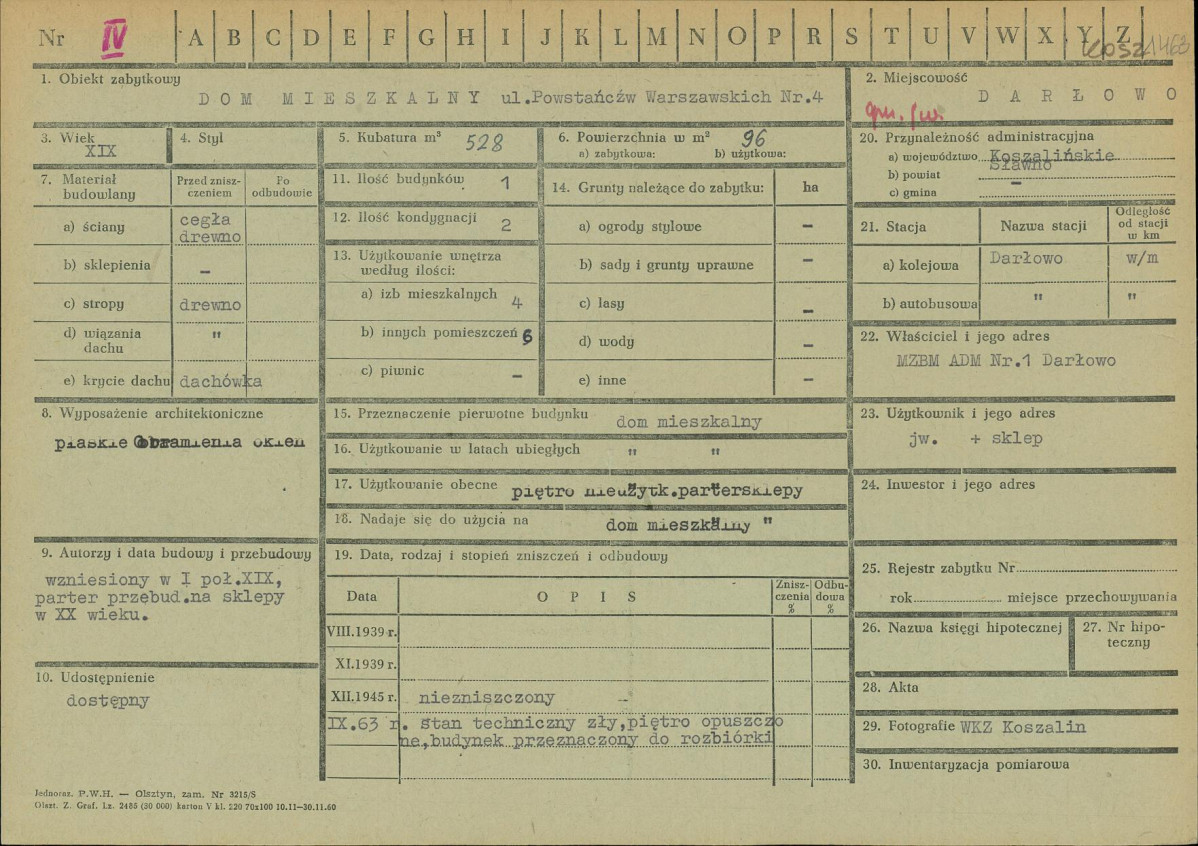 Nr IV A B C D E F G H I J K L M N O P R S T U V W X Y Z
1. Obiekt zabytkowy
DOM MIESZKALNY ul.Powstańczw Warszawskich Nr.4
2. Miejscowość
DARŁOWO
3. Wiek
XIX
4. Styl
5. Kubatura m³ 528
6. Powierzchnia w m² 96
a) zabytkowa: b) użytkowa:
7. Materiał budowlany
Przed zniszczeniem
Po odbudowie
a) ściany cegła
drewno
b) sklepienia –
c) stropy drewno
d) wiązania dachu "
e) krycie dachu dachówka
8. Wyposażenie architektoniczne
płaskie obramienia okien
9. Autorzy i data budowy i przebudowy
wzniesiony w I poł.XIX,
parter przebud.na sklepy
w XX wieku.
10. Udostępnienie
dostępny
11. Ilość budynków 1
12. Ilość kondygnacji 2
13. Użytkowanie wnętrza
według ilości:
a) izb mieszkalnych 4
b) innych pomieszczeń 6
c) piwnic –
14. Grunty należące do zabytku: ha
a) ogrody stylowe –
b) sady i grunty uprawne –
c) lasy –
d) wody –
e) inne –
15. Przeznaczenie pierwotne budynku dom mieszkalny
16. Użytkowanie w latach ubiegłych " "
17. Użytkowanie obecne piętro nieużytk.partersklepy
18. Nadaje się do użycia na dom mieszkalny "
19. Data, rodzaj i stopień zniszczeń i odbudowy
Data OPIS Zniszczenia % Odbudowa %
VIII.1939 r.
XI.1939 r.
XII.1945 r. niezniszczony –
IX.63 r. stan techniczny zły,piętro opuszczo
ne,budynek przeznaczony do rozbiórki
20. Przynależność administracyjna
a) województwo Koszalińskie
b) powiat Sławno
c) gmina –
21. Stacja Nazwa stacji Odległość od stacji w km
a) kolejowa Darłowo w/m
b) autobusowa " "
22. Właściciel i jego adres
MZBM ADM Nr.1 Darłowo
23. Użytkownik i jego adres
jw. + sklep
24. Inwestor i jego adres
25. Rejestr zabytku Nr
rok miejsce przechowywania
26. Nazwa księgi hipotecznej
27. Nr hipoteczny
28. Akta
29. Fotografie WKZ Koszalin
30. Inwentaryzacja pomiarowa
Jednoraz. P.W.H. — Olsztyn, zam. Nr 3215/S
Olszt. Z. Graf. Lz. 2485 (50 000) karton V kl. 220 70x100 10.11—30.11.60